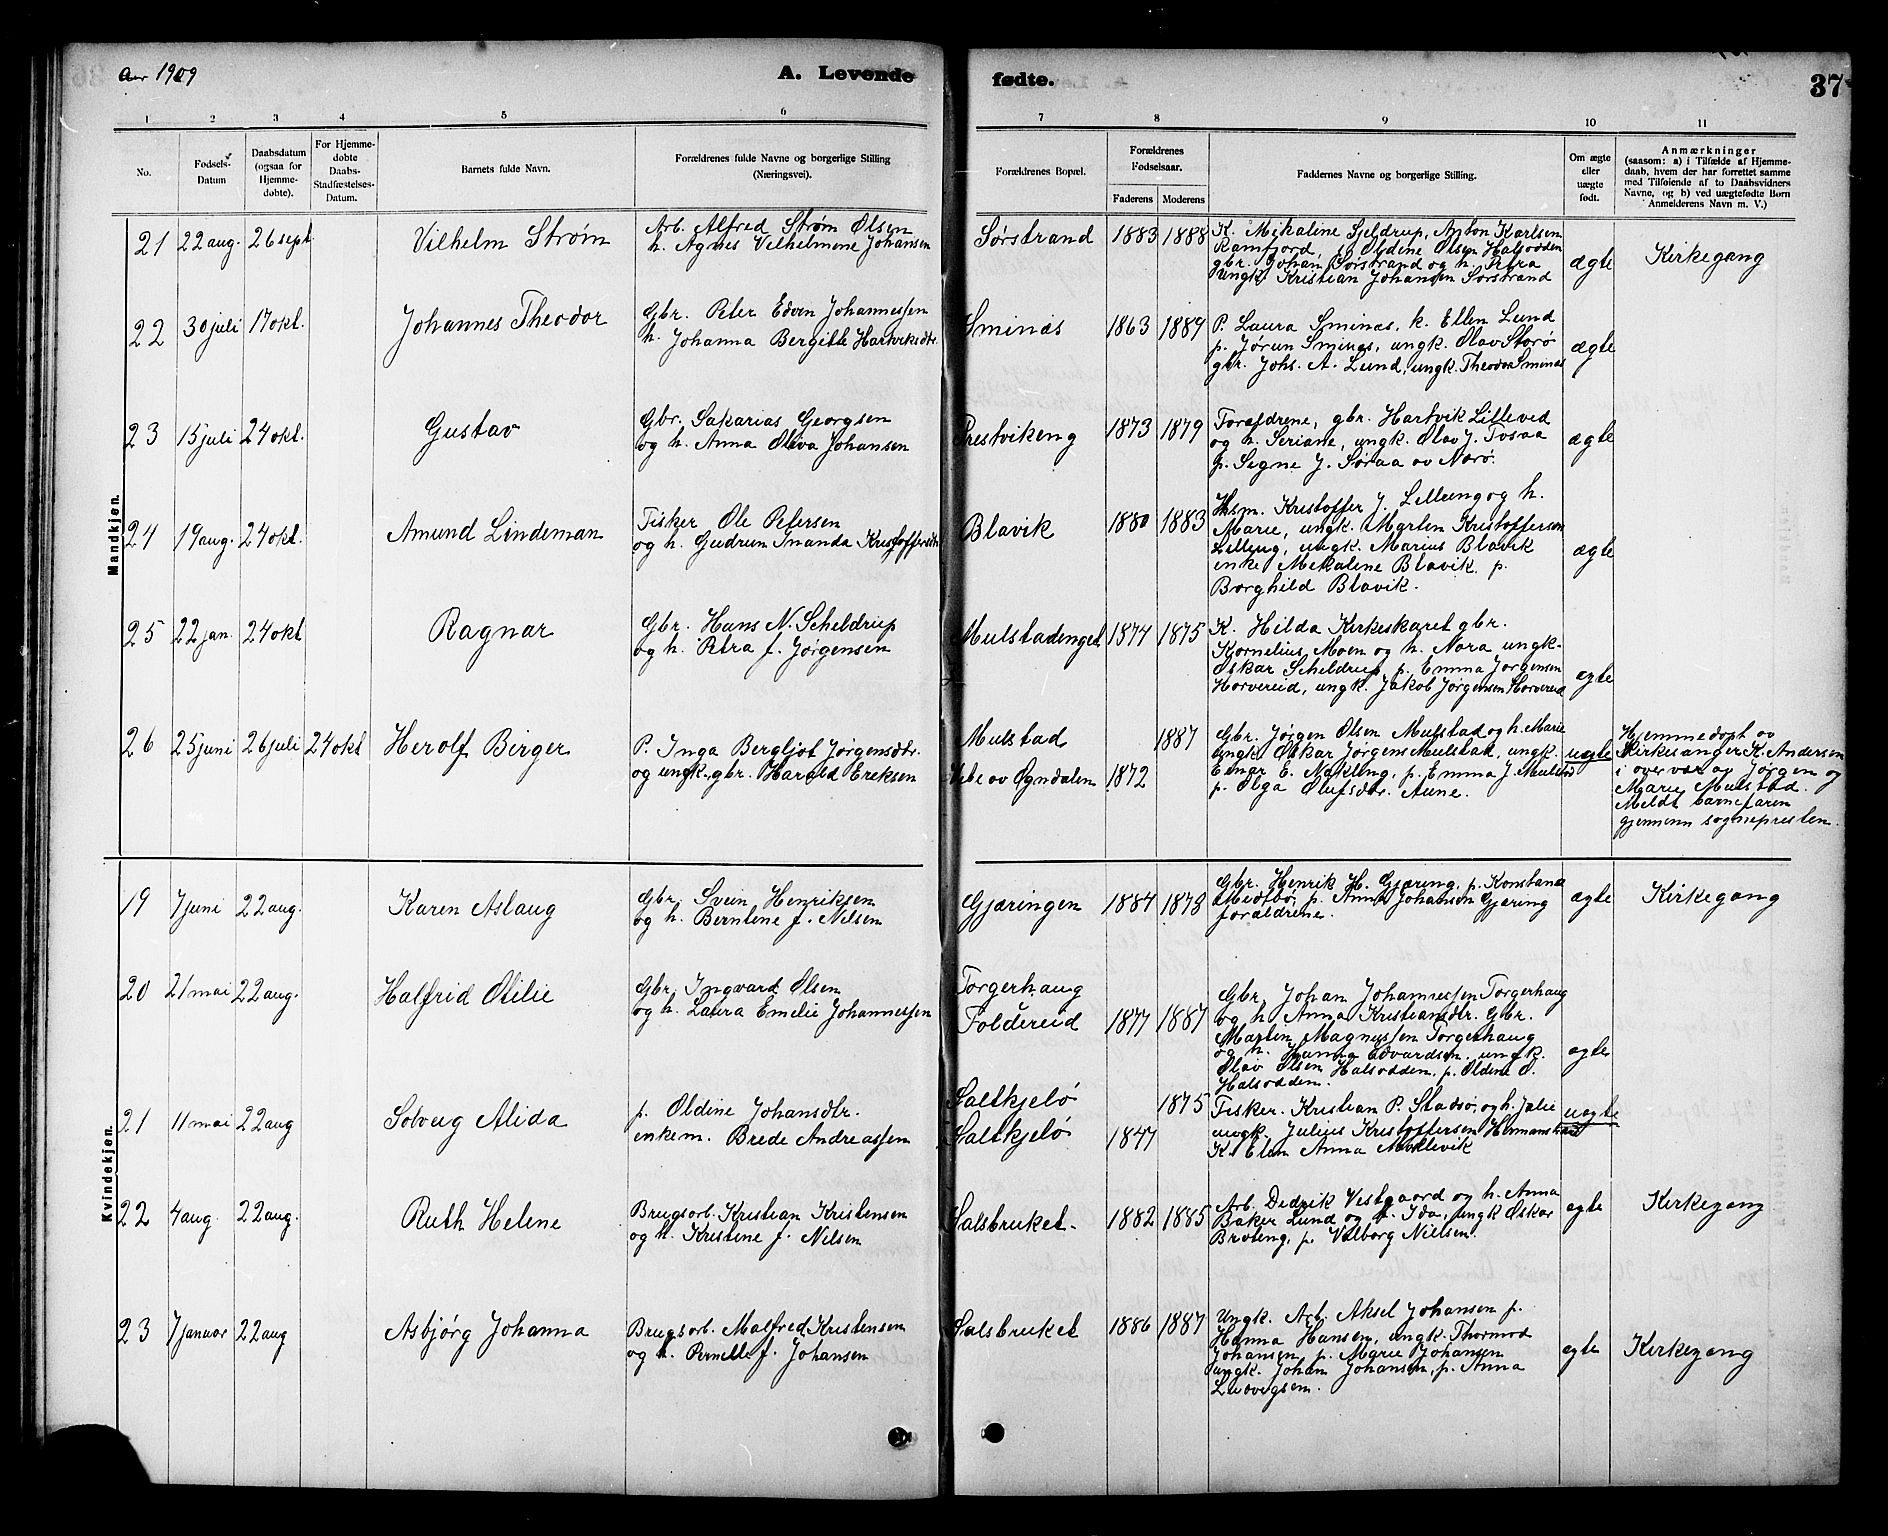 Aar 1909
A. Levende fødte.
37
1 2 3 4 5 6 7 8 9 10 11
No.
Fødsels-Datum
Daabsdatum (ogsaa for Hjemmedøbte).
For Hjemmedøbte Daabs-Stadfæstelses-Datum.
Barnets fulde Navn.
Forældrenes fulde Navne og borgerlige Stilling (Næringsvei).
Forældrenes Bopæl.
Forældrenes Fødselsaar.
Faderens Moderens
Faddernes Navne og borgerlige Stilling.
Om ægte eller uægte født.
Anmærkninger
(saasom: a) i Tilfælde af Hjemmedaab, hvem der har forrettet samme med Tilføiende af to Daabsvidners Navne, og b) ved uægtefødte Børn Anmelderens Navn m. V.)
Mandkjøn.
21 22 aug. 26 sept Vilhelm Strøm
Arb. Alfred Strøm Olsen
h. Agnes Vilhelmine Johansen
Sørstrand 1883 1888
K. Mikaline Sjeldrup, Anton Karlsen
Ramfjord, p. Oldine Olsen Halsodden
gbr. Johan Sørstrand og h. Petra
ungk. Kristian Johansen Sørstrand
ægte Kirkegang
22 30 juli 17 okt. Johannes Theodor
Gbr. Peter Edvin Johannessen
h. Johanna Bergitte Hartviksdtr.
Sminæs 1863 1889
P. Laura Sminæs, k. Ellen Lund
p. Jørun Sminæs, ungk. Olav Storø
gbr. Johs. A. Lund, ungk. Theodor Sminæs
ægte
23 15 juli 24 okt. Gustav
Gbr. Sakarias Georgsen
og h. Anna Oliva Johansen
Prestvikeng 1873 1879
Forældrene, gbr. Hartvik Lilleved
og h. Seriane, ungk. Olav J.
p. Signe J. Søraa av Nærø.
ægte
24 19 aug. 24 okt. Amund Lindeman
Fisker Ole Petersen
og h. Gudrun Inanda Kristoffersdtr
Blavik 1880 1883
Hsm. Kristoffer J. Lilleeng og h.
Marie, ungk. Morten Kristoffersen
Lilleng, ungk. Marius Blavik
enke Mekaline Blavik. p.
Borghild Blavik.
ægte
25 22 jan. 24 okt Ragnar
Gbr. Hans N. Scheldrup
og h. Petra f. Jørgensen
Mulstadenget 1874 1875
K. Hilda Kirkeskaret gbr.
Kornelius Moen og h. Nora ungk.
Oskar Scheldrup, p. Emma Jørgensen
Horvereid, ungk. Jakob Jørgensen Horvereid
ægte
26 25 juni 26 juli 24 okt Herolf Birger
P. Inga Bergljot Jørgensdtr.
og ungk., gbr. Harald Eriksen
Mulstad 1887
av Øgndalen 1872
Gbr. Jørgen Olsen Mulstad og h. Marie
ungk. Oskar Jørgens Mulstad, ungk.
Einar E. Nakling, p. Emma J. Mulstad
p. Olga Olufsdtr. Aune.
uægte
Hjemmedøpt av
kirkesanger K. Andersen
i overvær av Jørgen og
Marie Mulstad.
Meldt barnefaren
gjennem sognepresten.
Kvindekjøn.
19 7 juni 22 aug. Karen Aslaug
Gbr. Svein Henriksen
og h. Berntine f. Nilsen
Gjæringen 1884 1873
Gbr. Henrik H. Gjæring, p. Konstanse
Midtbø, p. Anna Johansen Gjæring
forældrene.
ægte Kirkegang
20 21 mai 22 aug. Halfrid Otilie
Gbr. Ingvard Olsen
og h. Laura Emelie Johannessen
Torgerhaug
Foldereid 1877 1887
Gbr. Johan Johannessen Torgerhaug
og h. Anna Kristiansdtr. Gbr.
Martin Magnussen Torgerhaug
og h. Hanna Edvardsen, ungk.
Olav Olsen Halsodden, p. Oldine O.
Halsodden.
ægte
21 11 mai 22 aug Solveig Alida
p. Oldine Johansdtr.
enkem. Brede Andreassen
Saltkjelø 1875
Saltkjelø 1847
Fisker. Kristian P. Stadsø, og h. Julie
ungk. Julius Kristoffersen Hermanstrand
K. Elen Anna Møllevik
uægte
22 4 aug. 22 aug. Ruth Helene
Brugsarb. Kristian Kristensen
og h. Kristine f. Nilsen
Salsbruket. 1882 1885
Arb. Didrik Vestgaard og h. Anna
Baker Lund og f. Ida, ungk Oskar
Brateng, p. Valborg Nielsen.
ægte Kirkegang
23 7 januar 22 aug Asbjørg Johanna
Brugsarb. Malfred Kristensen
og h. Pernelle f. Johansen
Salsbruket 1886 1887
Ungk. Arb. Aksel Johansen p.
Hanna Hansen, ungk. Thormod
Johansen, p. Marie Johansen
ungk. Johan Johansen, p. Anna
Ludvigsen.
ægte Kirkegang